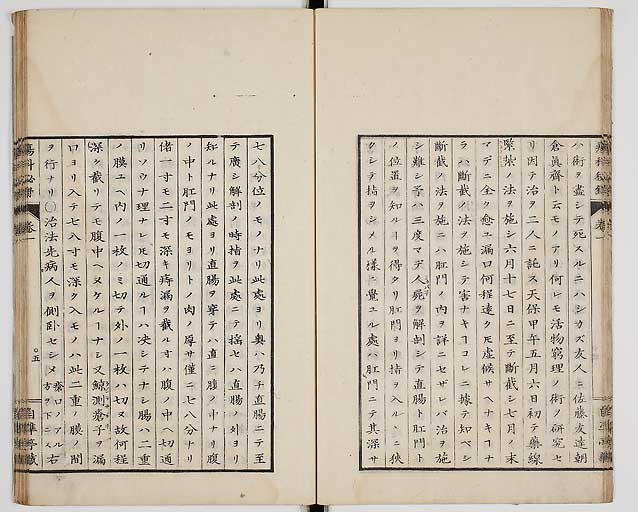 ハ術ヲ盡シテ死スルニハシカズ友人ニ佐藤友達朝
倉眞齊ト云モノアリ何レモ活物窮理ノ術ノ研究セ
リ因テ治ヲ二人ニ託ス天保甲午五月六日初テ藥線
緊紮ノ法ヲ施シ六月十七日ニ至テ斷截シ七月ノ末
マデニ全ク愈ユ漏口何程遠クモ虚候サヘナキヿナ
ラハ斷截ノ法ヲ施シテ害ナキヿコレニ據テ知ベシ
斷截ノ法ヲ施ニハ肛門ノ内ヲ詳ニセザレバ治ヲ施
シ難シ予ハ三度マデ人屍ヲ解剖シテ直腸ト肛門ト
ノ位置ヲ知ルヿヲ得タリ肛門ヨリ指ヲ入ル丶ニ狹
クシテ指ヲシメル樣ニ覺ユル處ハ肛門ニテ其深サ
七八分位ノモノナリ此處ヨリ奥ハ乃チ直腸ニテ至
テ廣シ解剖ノ時指ヲ此處ニテ搖セハ直腸ノ外ヨリ
知ルナリ此處ヨリ直腸ヲ穿テハ直ニ腹ノ中ナリ腹
ノ中ト肛門ノモヨリトノ肉ノ厚サ僅ニ七八分ナリ
偖一寸モ二寸モ深キ痔漏ヲ截ルヿハ腹ノ中ヘ切通
リソウナ理ナレ𪜈切通ルヿハ決シテナシ腸ハ二重
ノ膜ユヘ内ノ一枚ノミ切テ外ノ一枚ハ切ヌ故何程
深ク截リテモ腹中ヘヌケルヿナシ又鯨測瘡子ヲ漏
口ヨリ入テ七八寸モ深ク入モノハ此二重ノ膜ノ間
ヲ行ナリ○治法先病人ヲ側臥セシメ瘡口ノアル方ヲ下ニス右
瘍科秘錄
卷一
五